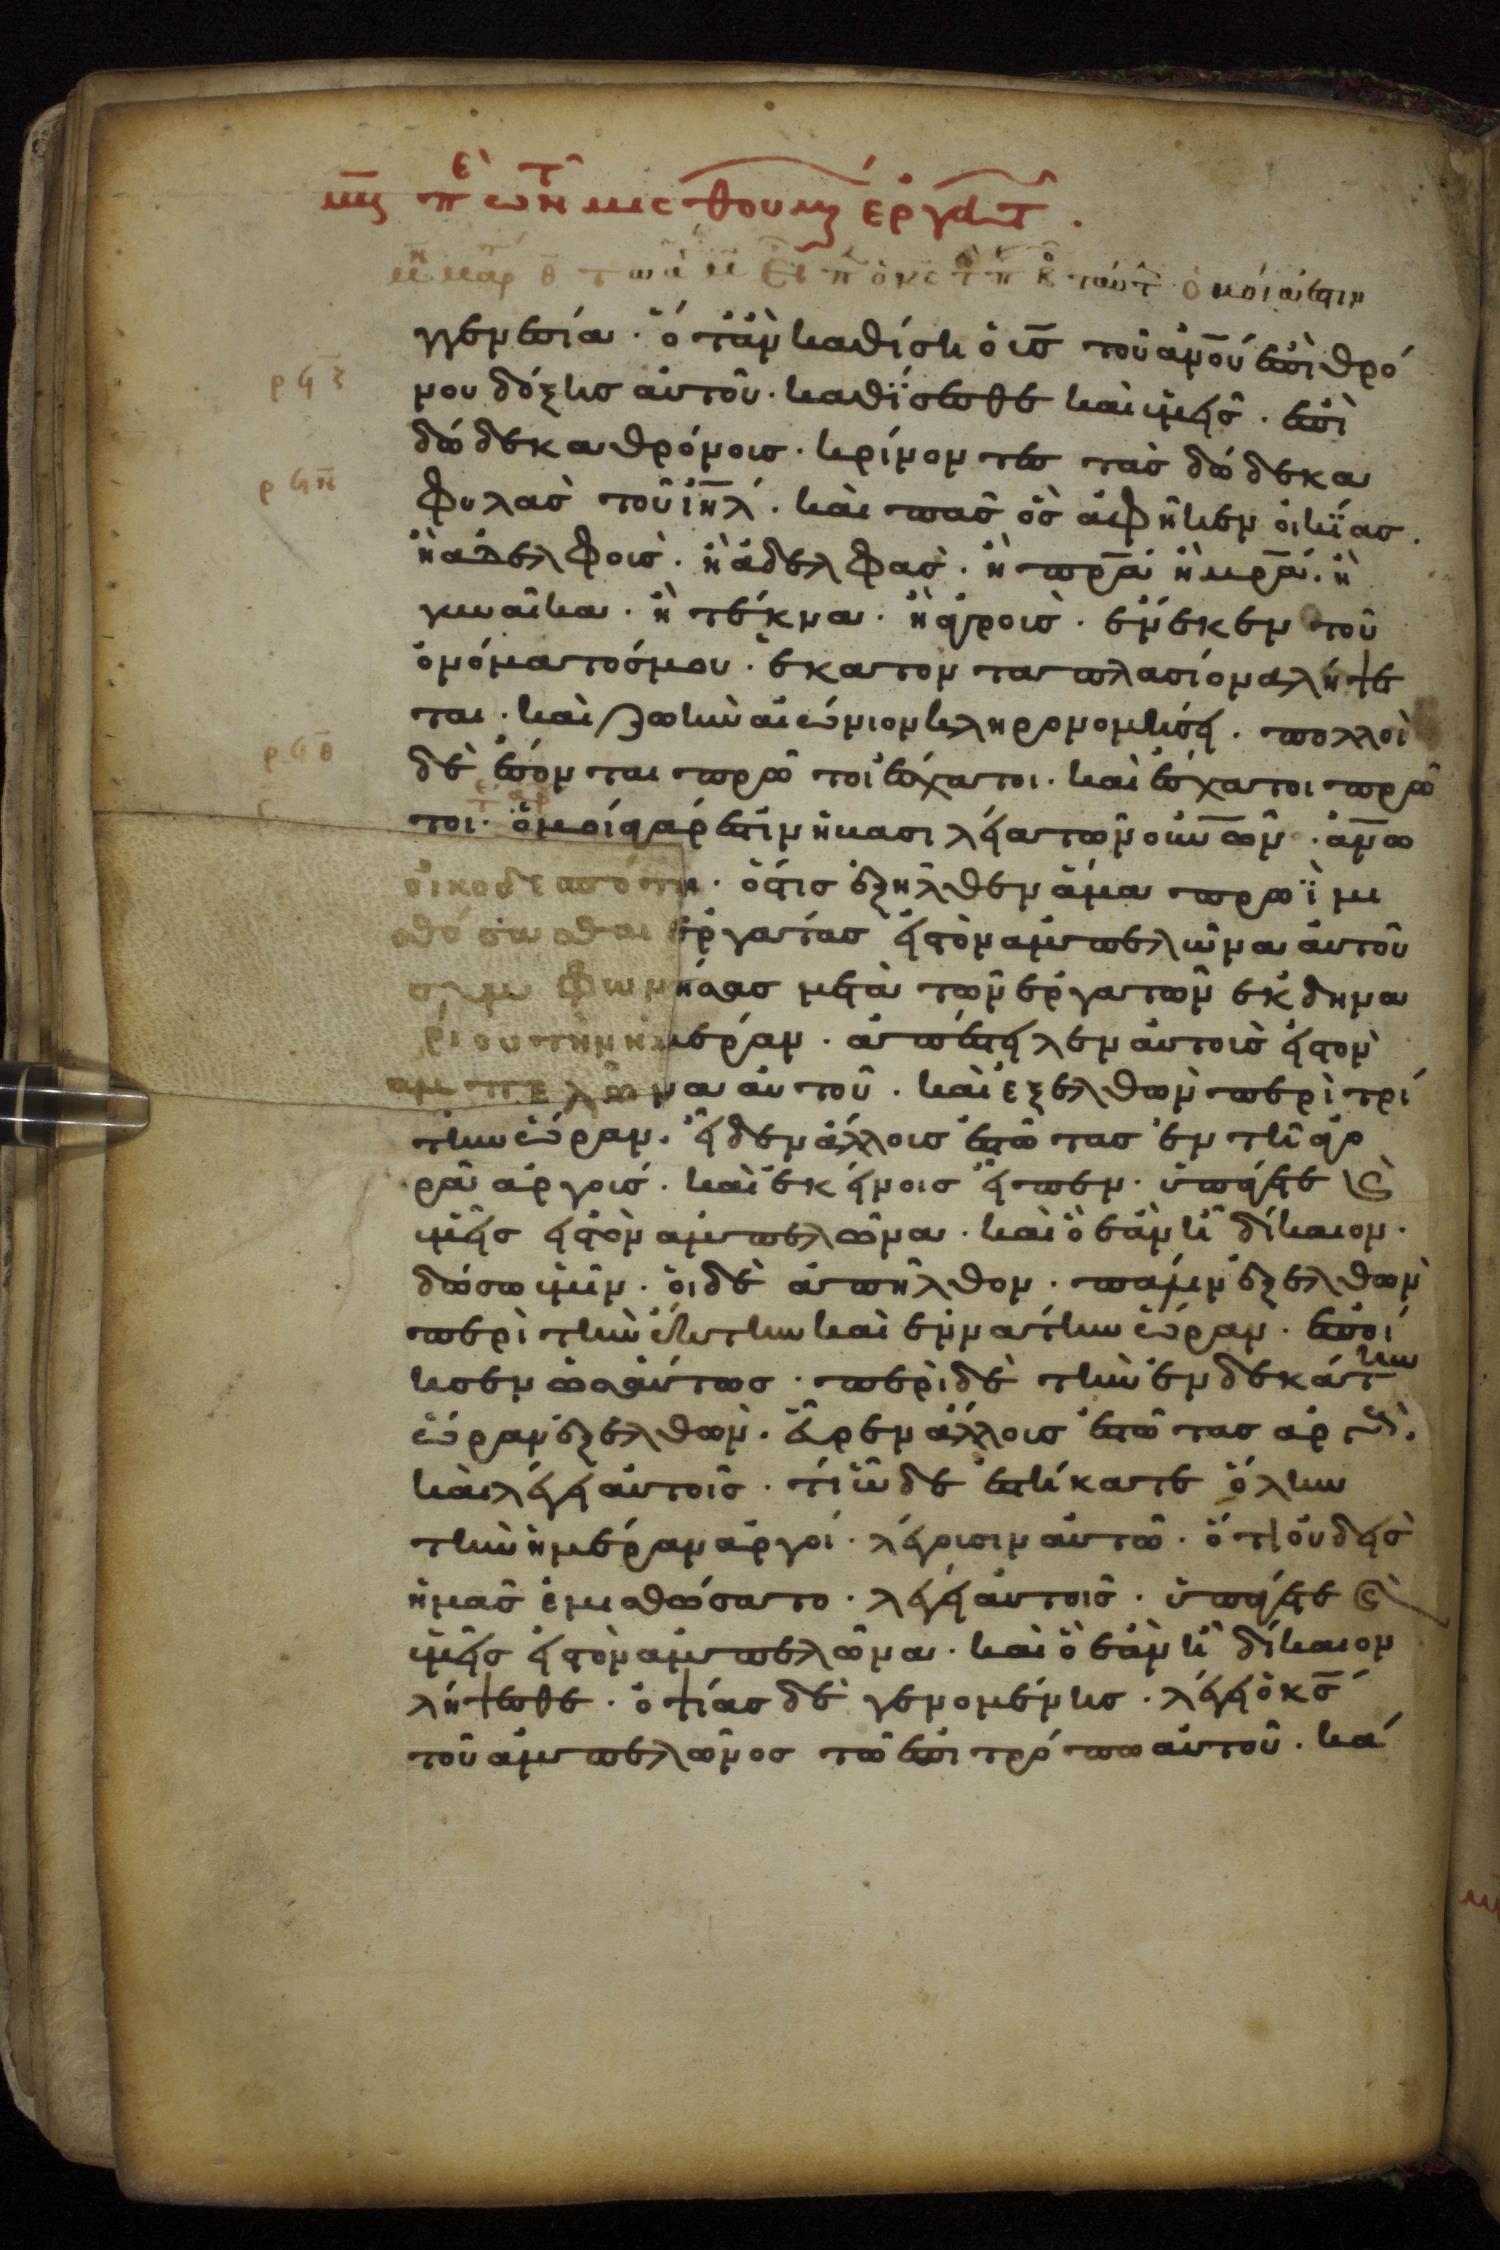 μς πε τῶν μισθουμ ἐργατ.
γγενεσία· ὅταν καθίση ὁ υ̅σ̅ τοῦ ἀν̅ο̅υ̅ ἐπὶ θρό
νου δόξης αὐτοῦ· καθΐσεσθε καὶ ὑμεῖς· ἐπὶ
δώδεκα θρόνοις· κρίνοντες τὰς δώδεκα
φυλὰς τοῦ ι̅η̅λ̅· καὶ πᾶς ὃς ἀφῆκεν οἰκΐας.
ἢ ἀδελφοὺς· ἢ ἀδελφὰς· ἢ π̅ρ̅α̅ ἢ μ̅ρ̅α̅· ἢ
γυναῖκα· ἢ τέκνα· ἢ ἀγροὺς· ἕνεκεν τοῦ
ὀνόματός μου· ἑκατονταπλασίονα λήψε
ται· καὶ ζωὴν αἰώνιον κληρονομήσει· πολλοὶ
δὲ ἔσονται πρῶτοι ἔσχατοι· καὶ ἔσχατοι πρῶ
τοι· ὁμοία γάρ ἐστιν ἡ βασιλεία τῶν ο̅υ̅ν̅ῶν· ἀν̅ω̅
οἰκοδεσπότη· ὅστις ἐξῆλθεν ἅμα πρωῒ μι
σθώσασθαι ἐργάτας εἰς τὸν ἀμπελῶνα αὐτοῦ
συμφωνήσας μετὰ τῶν ἐργατῶν ἐκ δηνα
ρίου τὴν ἡμέραν· ἀπέστειλεν αὐτοὺς εἰς τὸν
ἀμπελῶνα αὐτοῦ· καὶ ἐξελθὼν περὶ τρί
την ὥραν· εἶδεν ἄλλους ἑστῶτας ἐν τῆ ἀγο
ρᾶ ἀργούς· καὶ ἐκείνοις εἶπεν· ὑπάγετε καὶ
ὑμεῖς εἰς τὸν ἀμπελῶνα· καὶ ὃ ἐὰν ἦ δίκαιον·
δώσω ὑμῖν· οἱ δὲ ἀπῆλθον· πάλιν ἐξελθὼν
περὶ τὴν ἕκτην καὶ ἐννάτην ὥραν· ἐποί
ησεν ὡσαύτως· περὶ δὲ τὴν ἑνδεκάτην
ὥραν ἐξελθὼν· εὗρεν ἄλλους ἑστῶτας ἀργοὺς·
καὶ λέγει αὐτοῖς· τί ὧδε ἑστήκατε ὅλην
τὴν ἡμέραν ἀργοί· λέγουσιν αὐτῶ· ὅτι οὐδεὶς
ἡμᾶς ἐμισθώσατο· λέγει αὐτοῖς· ὑπάγετε καὶ
ὑμεῖς εἰς τὸν ἀμπελῶνα· καὶ ὃ ἐὰν ἦ δίκαιον
λήψεσθε· ὀψίας δὲ γενομένης· λέγει ὁ κ̅ς̅
τοῦ ἀμπελῶνος τῶ ἐπιτρόπω αὐτοῦ· κά
ρϟζ
ρϟη
ρϟθ
ς